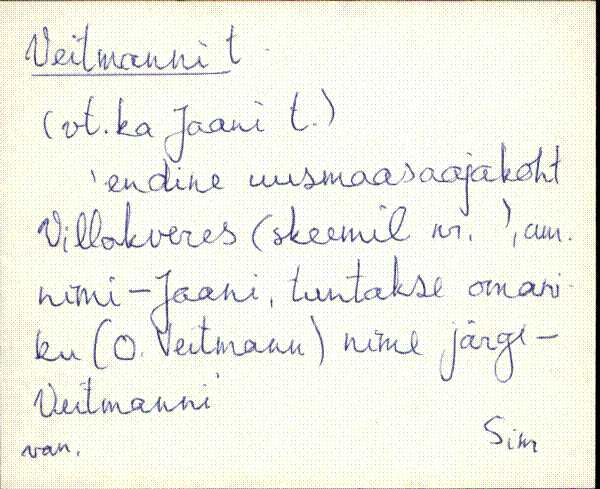 Veitmanni t.
(vt. ka Jaani t.)
'endine uusmaasaajakoht
Villakveres (skeemil nr. ), am.
nimi - Jaani, tuntakse omani-
ku (O. Veitmann) nime järgi -
Veitmanni'
van. Sim